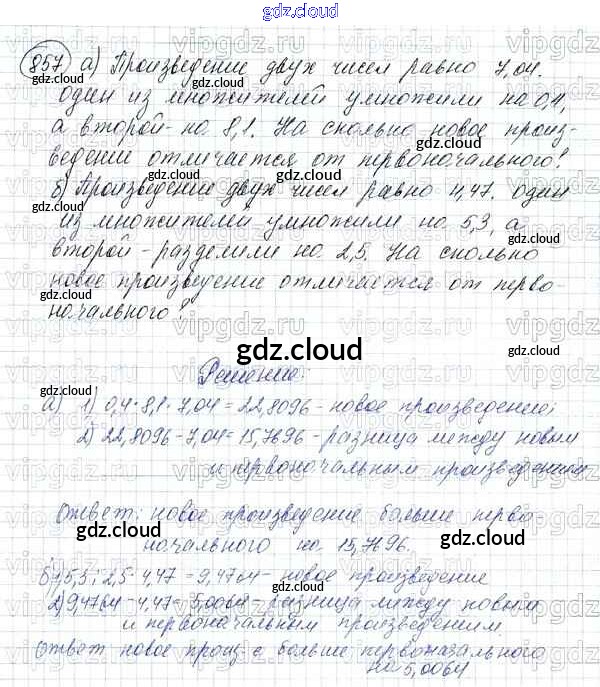 gdz.cloud
857 а) Произведение двух чисел равно 7,04.
один из множителей умножили на 0,4,
а второй - на 8,1. На сколько новое произ-
ведение отличается от первоначального?
б) Произведение двух чисел равно 4,47. один
из множителей умножили на 5,3, а
второй - разделили на 2,5. На сколько
новое произведение отличается от перво-
начального?
gdz.cloud
Решение:
а) 1) 0,4·8,1·7,04=22,8096 - новое произведение;
2) 22,8096-7,04=15,7696 - разница между новым
и первоначальным произведением
Ответ: новое произведение больше перво
начального на 15,7696.
б) 1) 5,3:2,5·4,47=9,4764 - новое произведение
2) 9,4764-4,47=5,0064 - разница между новым
и первоначальным произведением.
Ответ новое произ-е больше первоначального
на 5,0064